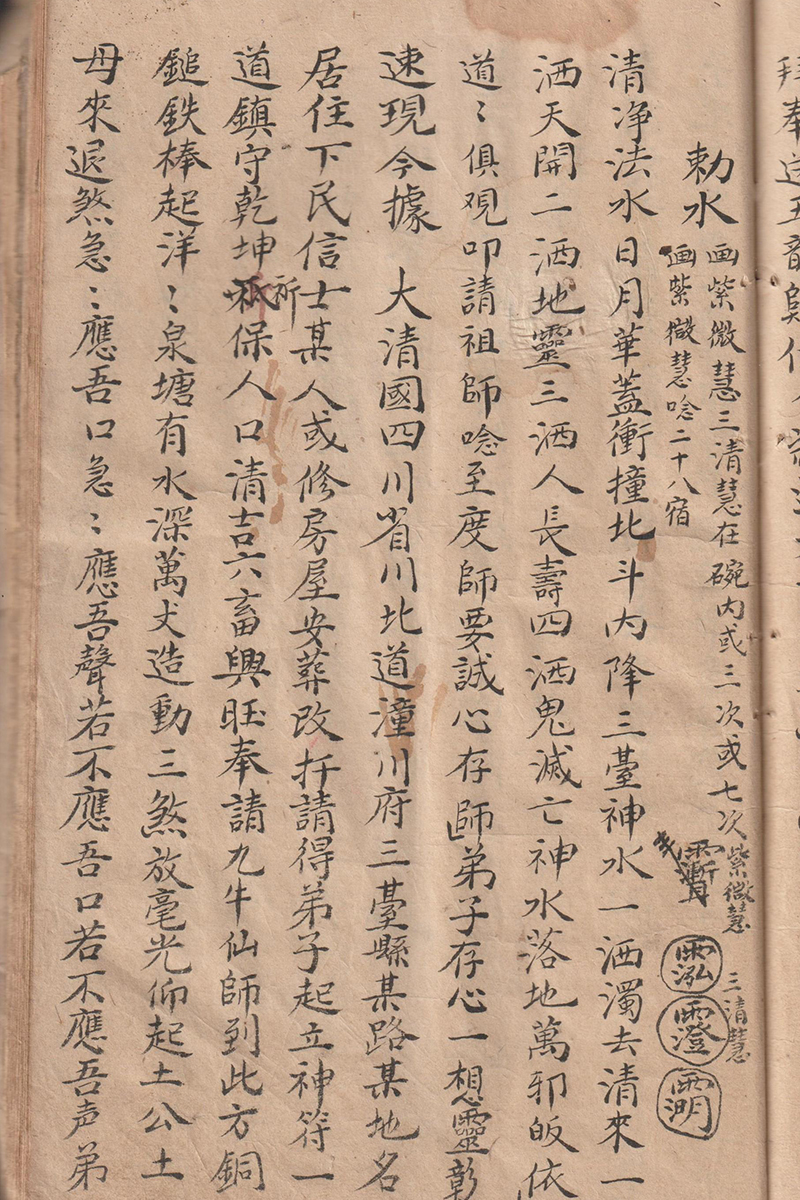 勅水
画紫微慧三清慧在碗内或三次或七次紫微慧 三清慧
画紫微慧唸二十八宿
清净法水日月華蓋衝撞北斗内降三臺神水一洒濁去清來一
洒天開二洒地靈三洒人長壽四洒鬼滅亡神水落地萬邪皈依
道〻俱現叩請祖師唸至度師要誠心存師弟子存心一想靈彰
速現今據 大清國四川省川北道潼川府三臺縣某路某地名
居住下民信士某人或修房屋安葬改扦請得弟子起立神符一
道鎮守乾坤所保人口清吉六畜興旺奉請九牛仙師到此方銅
鎚鉄棒起洋〻泉塘有水深萬丈造動三煞放毫光仰起土公土
母來退煞急〻應吾口急〻應吾聲若不應吾口若不應吾声弟